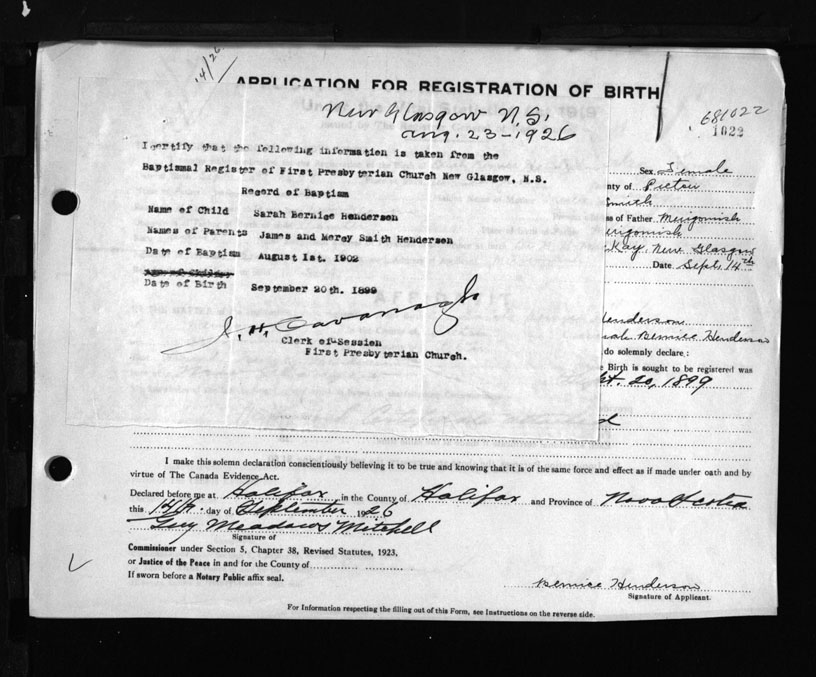 14/26
APPLICATION FOR REGISTRATION OF BIRTH
New Glasgow N.S.
Aug. 23-1926
681022
1022
I certify that the following information is taken from the
Baptismal Register of First Presbyterian Church New Glasgow, N.S.
Record of Baptism
Name of Child Sarah Bernice Henderson
Names of Parents James and Mercy Smith Henderson
Date of Baptism August 1st. 1902
Date of Birth September 20th. 1899
J. H. Cavanagh
Clerk of Session
First Presbyterian Church.
Sex Female
nty of Pictou
Smith
ss of Father Merigomish
erigomish
Kay, New Glasgow
Date Sept. 14th
Henderson
rah Bernice Henderson
do solemnly declare:
e Birth is sought to be registered was
pt. 20, 1899
d
I make this solemn declaration conscientiously believing it to be true and knowing that it is of the same force and effect as if made under oath and by
virtue of The Canada Evidence Act.
Declared before me at Halifax in the County of Halifax and Province of Nova Scotia
this 14th day of September 1926
Guy Meadows Mitchell
Signature of
Commissioner under Section 5, Chapter 38, Revised Statutes, 1923.
or Justice of the Peace in and for the County of
If sworn before a Notary Public affix seal.
Bernice Henderson
Signature of Applicant.
For Information respecting the filling out of this Form, see Instructions on the reverse side.